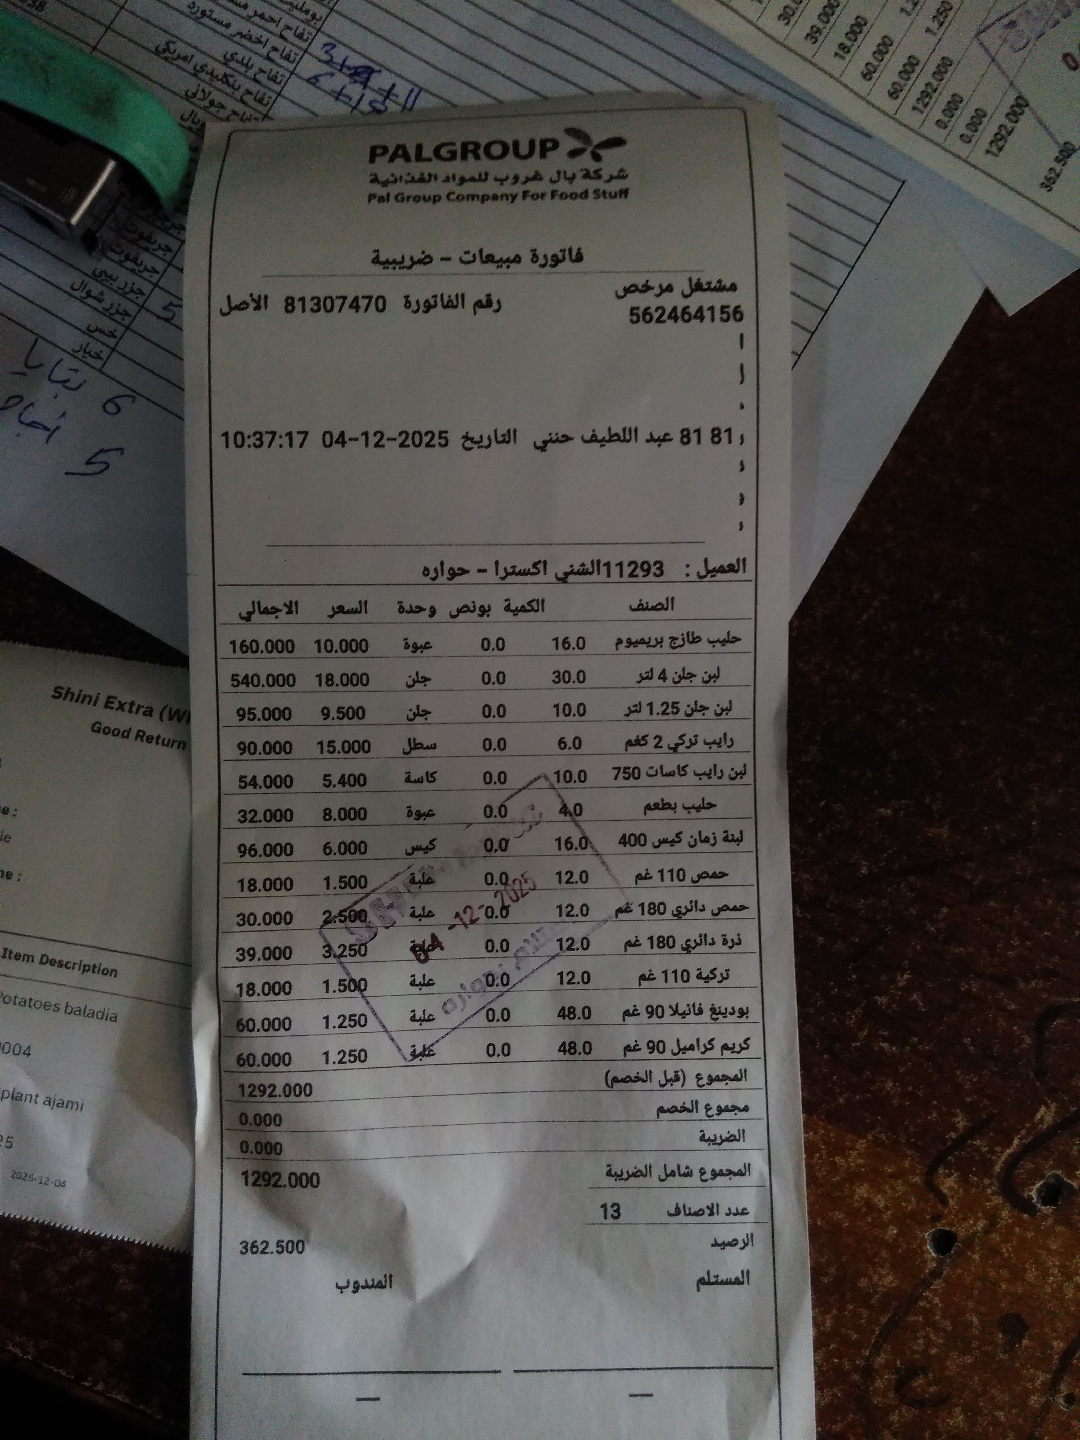 PALGROUP
شركة بال غروب للمواد الغذائية
Pal Group Company For Food Stuff
فاتورة مبيعات - ضريبية
مشتغل مرخص
562464156
رقم الفاتورة 81307470 الأصل
81 81 عبد اللطيف حنني التاريخ 04-12-2025 10:37:17
العميل : 11293الشني اكسترا - حواره
الصنف الكمية بونص وحدة السعر الاجمالي
حليب طازج بريميوم 16.0 0.0 عبوة 10.000 160.000
لبن جلن 4 لتر 30.0 0.0 جلن 18.000 540.000
لبن جلن 1.25 لتر 10.0 0.0 جلن 9.500 95.000
رايب تركي 2 كغم 6.0 0.0 سطل 15.000 90.000
لبن رايب كاسات 750 10.0 0.0 كاسة 5.400 54.000
حليب بطعم 4.0 0.0 عبوة 8.000 32.000
لبنة زمان كيس 400 16.0 0.0 كيس 6.000 96.000
حمص 110 غم 12.0 0.0 علبة 1.500 18.000
حمص دائري 180 غم 12.0 0.0 علبة 2.500 30.000
ذرة دائري 180 غم 12.0 0.0 علبة 3.250 39.000
تركية 110 غم 12.0 0.0 علبة 1.500 18.000
بودينغ فانيلا 90 غم 48.0 0.0 علبة 1.250 60.000
كريم كراميل 90 غم 48.0 0.0 علبة 1.250 60.000
المجموع (قبل الخصم) 1292.000
مجموع الخصم 0.000
الضريبة 0.000
المجموع شامل الضريبة 1292.000
عدد الاصناف 13
الرصيد 362.500
المستلم المندوب
04 -12- 2025
تفاح اخضر مستورد
تفاح بلدي
تفاح جولاني
جريفوت
جزر بيبي
جزر شوال
خس
خيار
5
6 بتايا
5
Shini Extra
Good Return
Item Description
Potatoes baladia
0004
plant ajami
2025-12-04
39.000
18.000
60.000
60.000
1292.000
0.000
0.000
1292.000
362.500
1.250